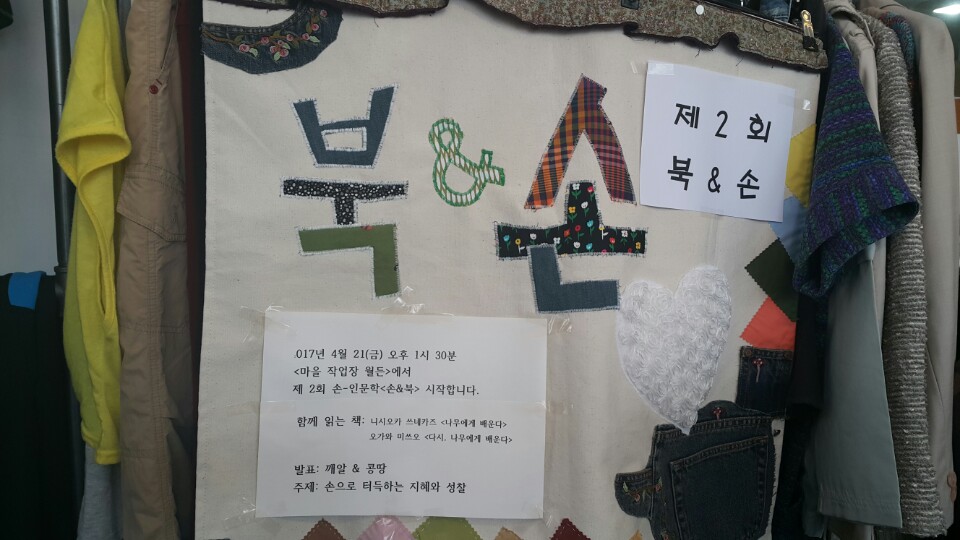 북&손
제 2 회
북 & 손
2017년 4월 21(금) 오후 1시 30분
<마을 작업장 월든>에서
제 2회 손-인문학<손&북> 시작합니다.
함께 읽는 책: 니시오카 쓰네카즈 <나무에게 배운다>
오가와 미쓰오 <다시, 나무에게 배운다>
발표: 깨알 & 콩땅
주제: 손으로 터득하는 지혜와 성찰